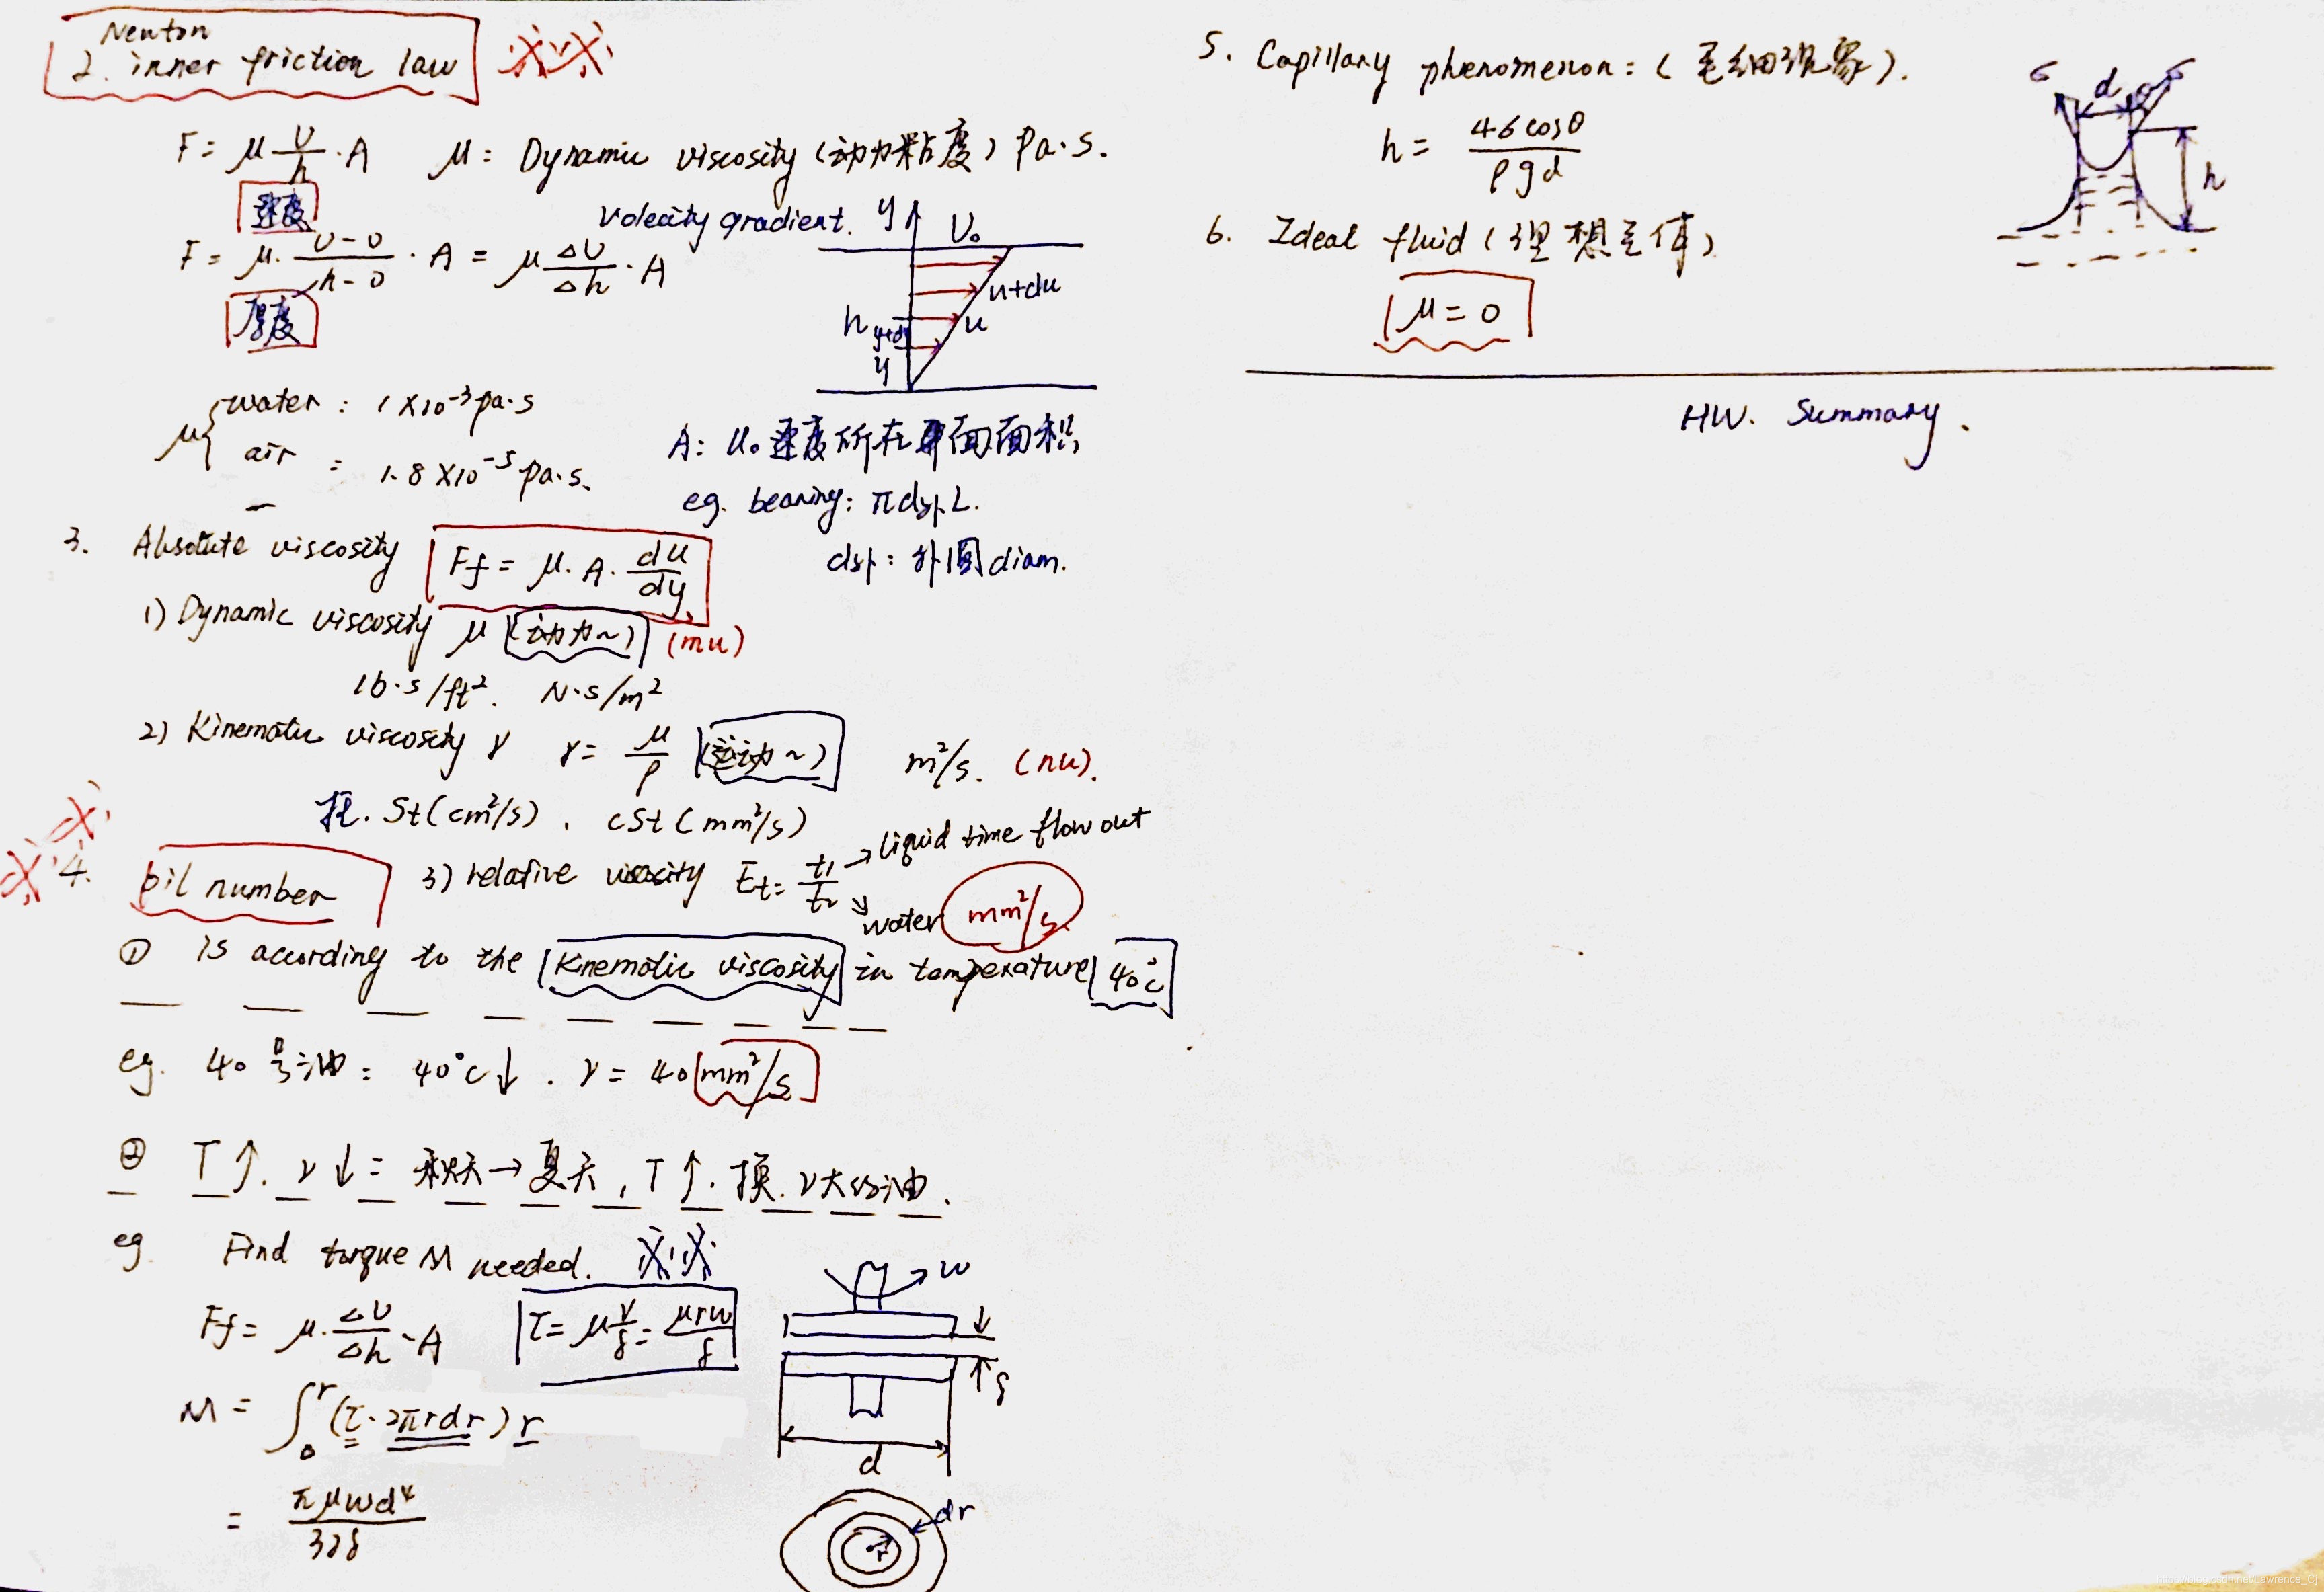 Newton
2. inner friction law ※※
F = μ U/h · A    μ: Dynamic viscosity (动力粘度) Pa·s.
速度
F = μ · (U-0)/(h-0) · A = μ ΔU/Δh · A
厚度
Volecity gradient. y U₀
u+du
h u
y
μ { water : 1×10⁻³ pa·s
air : 1.8×10⁻⁵ pa·s.
A: U₀ 速度所在平面面积
eg. bearing: πd外L.
d外: 外圆diam.
3. Absolute viscosity Ff = μ·A· du/dy
1) Dynamic viscosity μ (动力~) (mu)
lb·s/ft². N·s/m²
2) Kinematic viscosity γ γ = μ/ρ (运动~) m²/s. (nu).
St(cm²/s). cSt(mm²/s)
3) relative viscosity Et = t1/t2 → liquid time flow out
↘ water
※※ 4. oil number mm²/s
① is acuording to the Kinematic viscosity in tamperature 40°C
eg. 40号油: 40°C↓. γ = 40 mm²/s
② T↑. ν↓: 秋天→夏天, T↑. 换. ν大的油.
eg Find torque M needed. ※※
Ff = μ· ΔU/Δh · A    τ = μ v/δ = μrω/δ
M = ∫₀ʳ (τ·2πrdr) r
= πμωd⁴/32δ
ω
δ
d
dr
r
5. Capillary phenomenon: (毛细现象).
h = 4σcosθ/ρgd
σ d θ σ
h
6. Ideal fluid (理想流体)
μ = 0
HW. Summary.